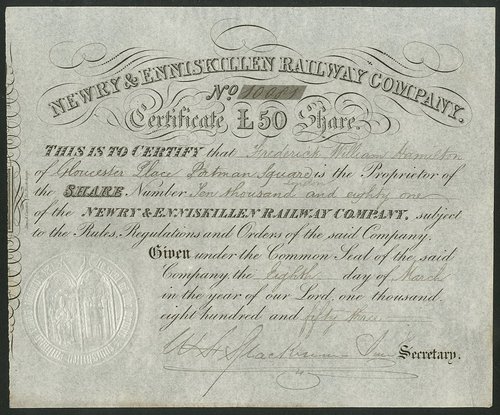 NEWRY & ENNISKILLEN RAILWAY COMPANY.
No 10081
Certificate £50 Share.
THIS IS TO CERTIFY that Frederick William Hamilton
of Gloucester Place Patman Square is the Proprietor of
London
the SHARE Number Ten thousand and eighty one
of the NEWRY & ENNISKILLEN RAILWAY COMPANY, subject
to the Rules, Regulations and Orders of the said Company.
Given under the Common Seal of the said
Company, the Eighth day of March
in the year of our Lord, one thousand
eight hundred and fifty three
Secretary.